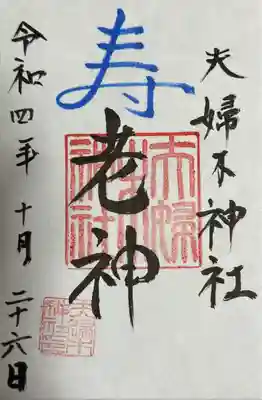 夫婦木神社
寿老神
令和四年十月二十六日
夫婦木神社